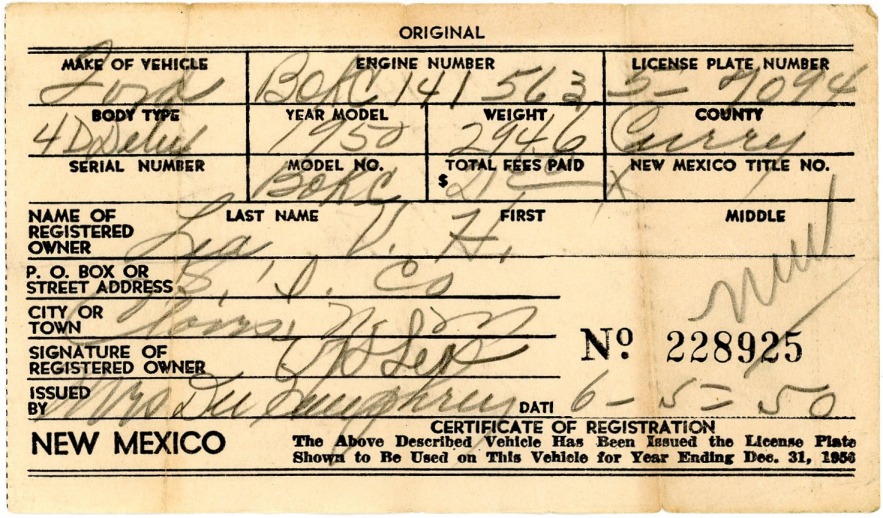 ORIGINAL
MAKE OF VEHICLE ENGINE NUMBER LICENSE PLATE NUMBER
Ford BOKC 141 563 5- 7094
BODY TYPE YEAR MODEL WEIGHT COUNTY
4D Delux 1950 2946 Curry
SERIAL NUMBER MODEL NO. TOTAL FEES PAID NEW MEXICO TITLE NO.
BOKC $ X
NAME OF REGISTERED OWNER LAST NAME FIRST MIDDLE
Lea, V. H.
P. O. BOX OR STREET ADDRESS Co
new
CITY OR TOWN Clovis, N. M
Nº 228925
SIGNATURE OF REGISTERED OWNER V H Lea
ISSUED BY Mrs Dee Humphrey DATE 6-5-50
NEW MEXICO
CERTIFICATE OF REGISTRATION
The Above Described Vehicle Has Been Issued the License Plate
Shown to Be Used on This Vehicle for Year Ending Dec. 31, 1950